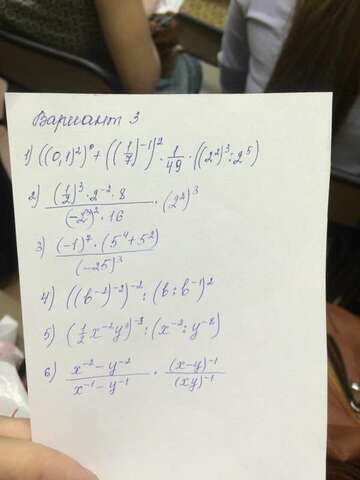 Вариант 3
1) ((0,1)²)⁰ + ((1/7)⁻¹)² · 1/49 · ((2²)³ : 2⁵)
2) (1/2)³ · 2⁻² · 8 / (-2)² · 16 · (2²)³
3) (-1)⁷ · (5⁴ + 5²) / (-25)³
4) ((b⁻²)⁻²)⁻² : (b : b⁻¹)²
5) (1/2 x⁻² y³)⁻³ : (x⁻² : y⁻⁸)
6) x⁻² - y⁻² / x⁻¹ - y⁻¹ · (x-y)⁻¹ / (xy)⁻¹